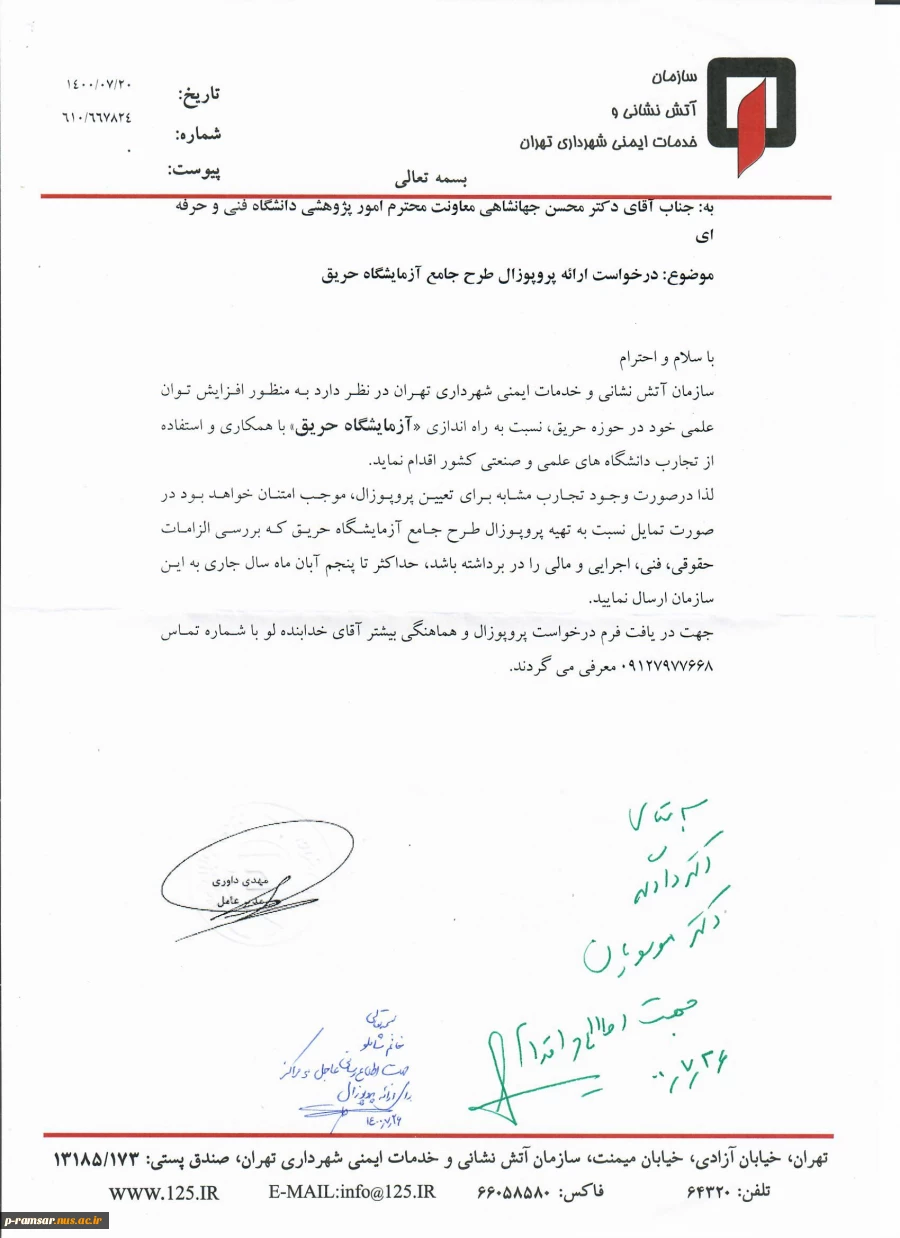 سازمان
آتش نشانی و
خدمات ایمنی شهرداری تهران
تاریخ: ١٤٠٠/٠٧/٢٠
شماره: ٦١٠/٦٦٧٨٢٤
پیوست: ٠
بسمه تعالی
به: جناب آقای دکتر محسن جهانشاهی معاونت محترم امور پژوهشی دانشگاه فنی و حرفه
ای
موضوع: درخواست ارائه پروپوزال طرح جامع آزمایشگاه حریق
با سلام و احترام
سازمان آتش نشانی و خدمات ایمنی شهرداری تهران در نظر دارد به منظور افزایش توان
علمی خود در حوزه حریق، نسبت به راه اندازی «آزمایشگاه حریق» با همکاری و استفاده
از تجارب دانشگاه های علمی و صنعتی کشور اقدام نماید.
لذا درصورت وجود تجارب مشابه برای تعیین پروپوزال، موجب امتنان خواهد بود در
صورت تمایل نسبت به تهیه پروپوزال طرح جامع آزمایشگاه حریق که بررسی الزامات
حقوقی، فنی، اجرایی و مالی را در برداشته باشد، حداکثر تا پنجم آبان ماه سال جاری به این
سازمان ارسال نمایید.
جهت در یافت فرم درخواست پروپوزال و هماهنگی بیشتر آقای خدابنده لو با شماره تماس
۰۹۱۲۷۹۷۷۶۶۸ معرفی می گردند.
مهدی داوری
مدیر عامل
دکتر
دکتر موسویان
جهت
۰۰/۷/۲۶
بسمه تعالی
خانم شاملو
جهت اطلاع رسانی عاجل به مراکز
برای ارائه پروپوزال
۱۴۰۰/۷/۲۶
تهران، خیابان آزادی، خیابان میمنت، سازمان آتش نشانی و خدمات ایمنی شهرداری تهران، صندق پستی: ۱۳۱۸۵/۱۷۳
تلفن: ۶۴۳۲۰ فاکس: ۶۶۰۵۸۵۸۰ E-MAIL:info@125.IR WWW.125.IR
p-ramsar.nus.ac.ir